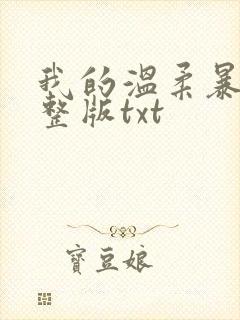 我的温柔暴
整版txt
寶豆娘